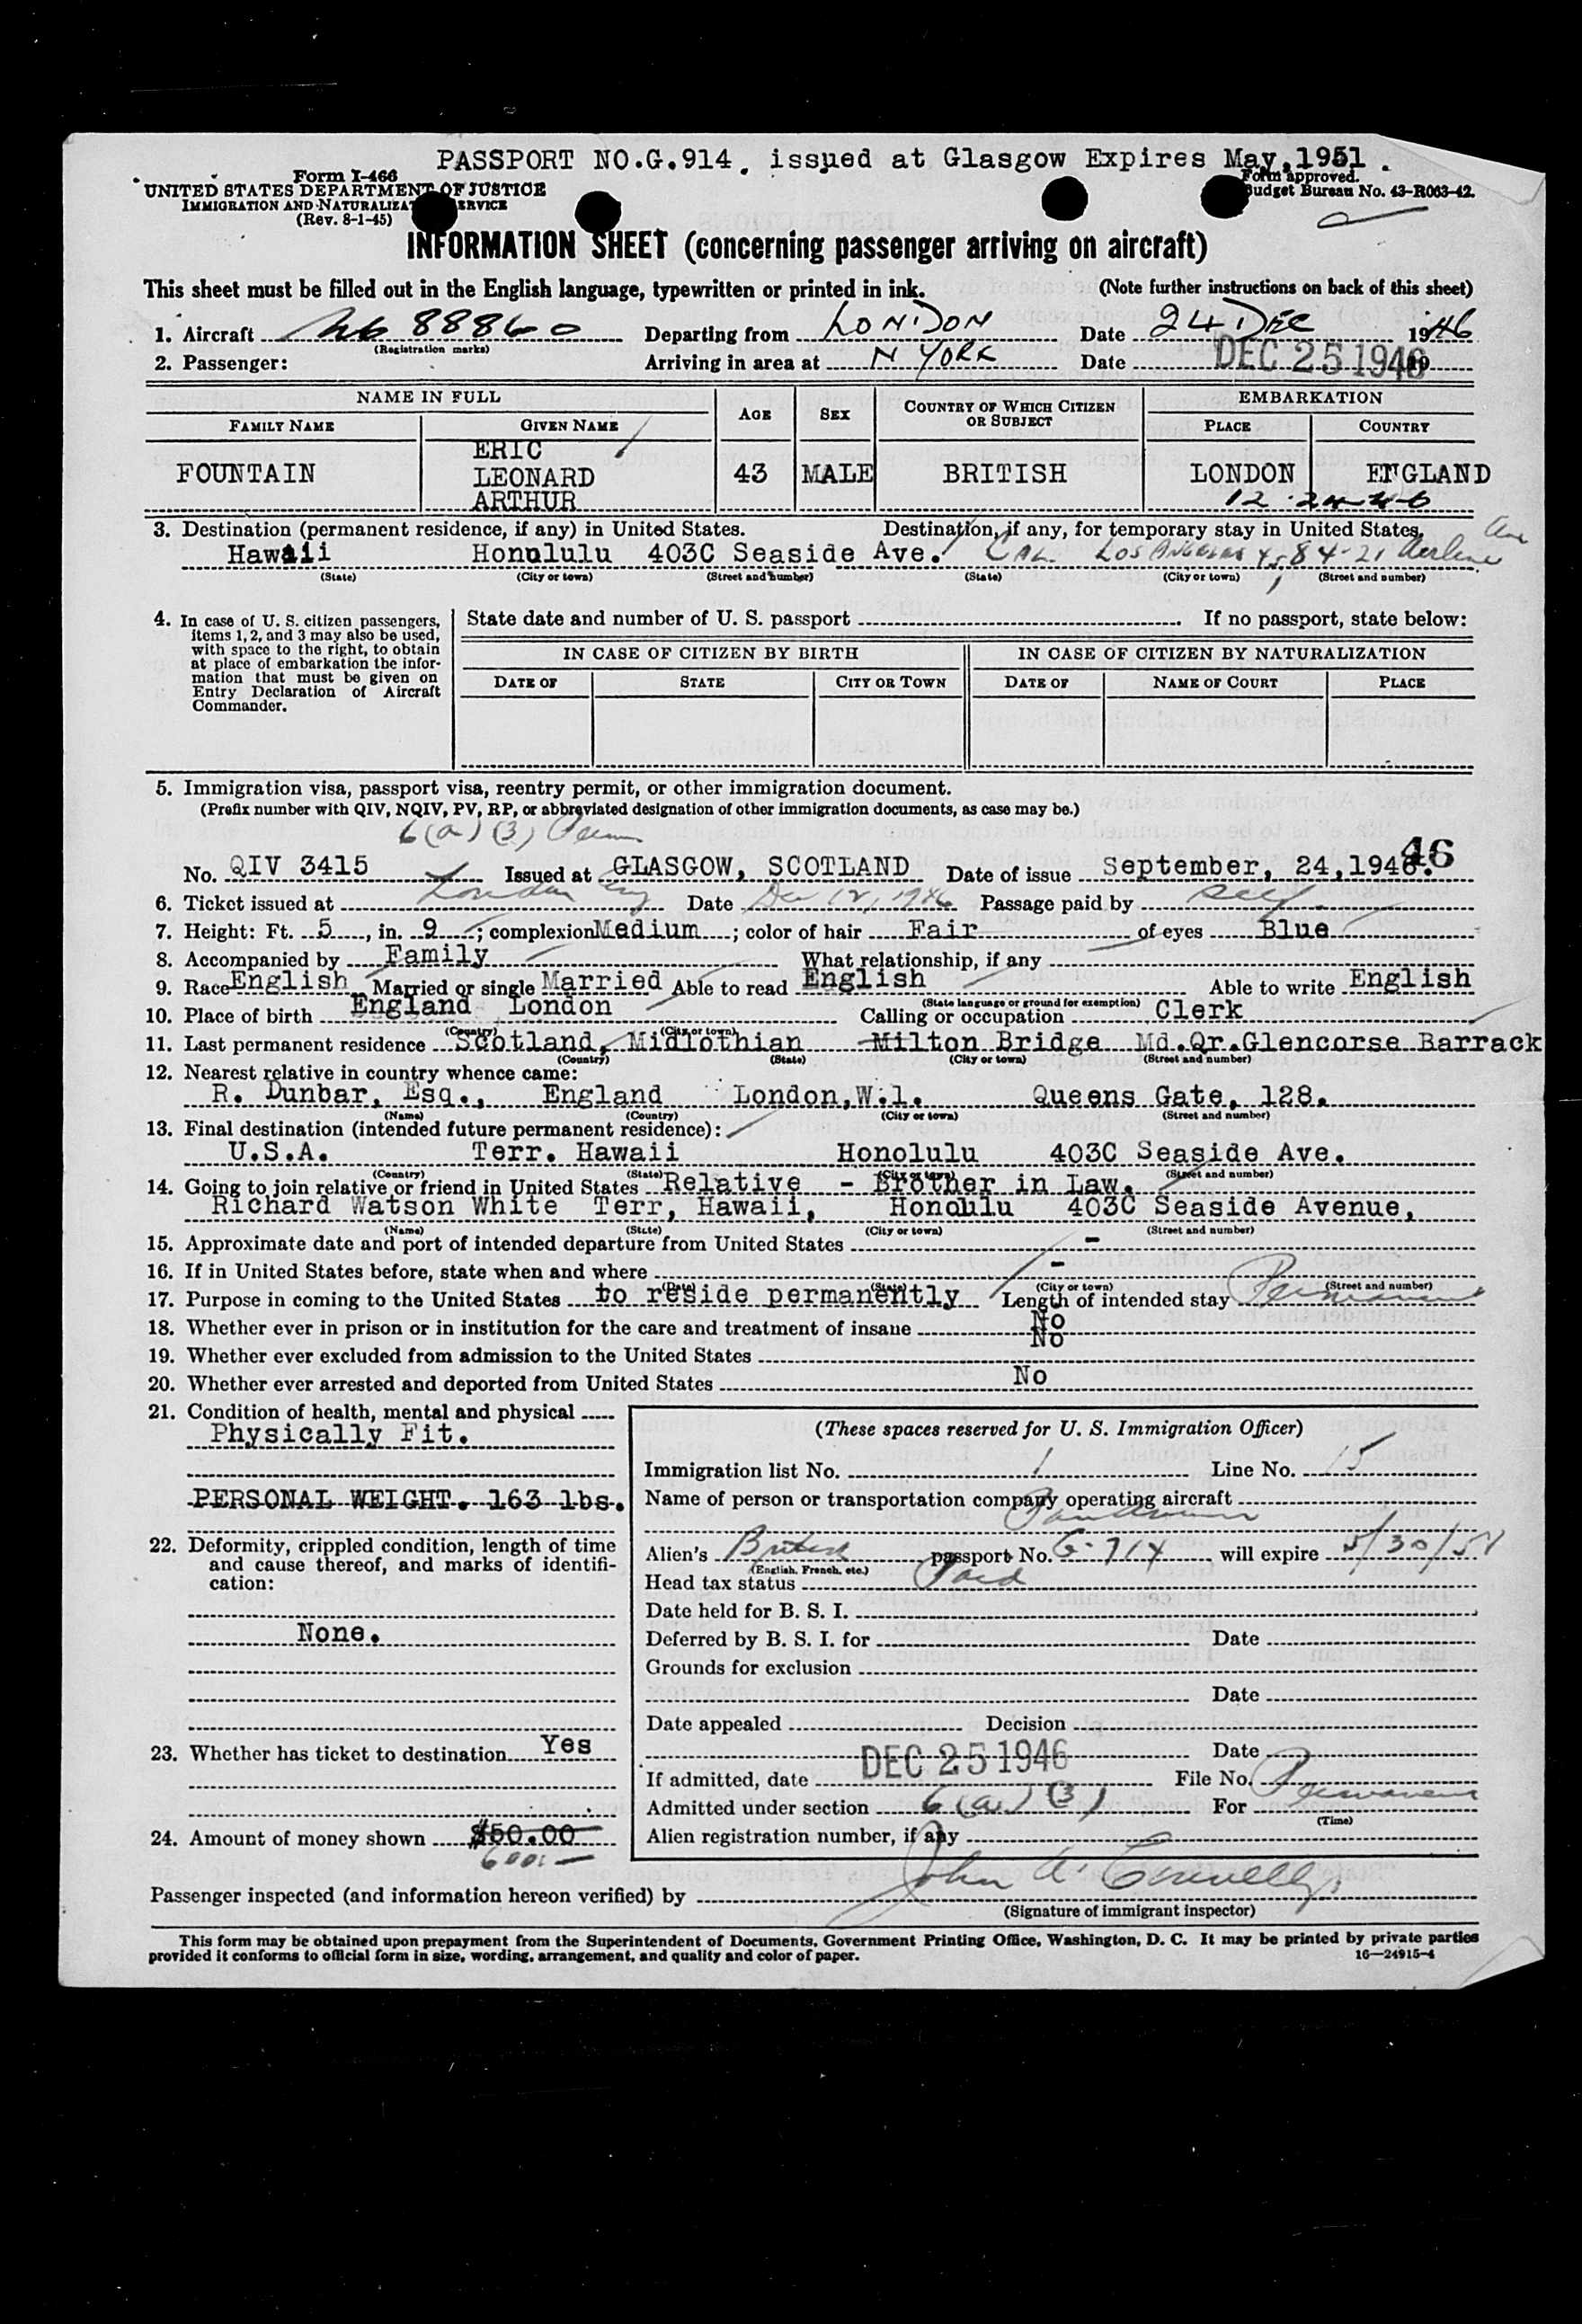 PASSPORT NO.G.914. issued at Glasgow Expires May,1951.
Form I-466
UNITED STATES DEPARTMENT OF JUSTICE
IMMIGRATION AND NATURALIZATION SERVICE
(Rev. 8-1-45)
Form approved.
Budget Bureau No. 43-R063-42.
INFORMATION SHEET (concerning passenger arriving on aircraft)
This sheet must be filled out in the English language, typewritten or printed in ink. (Note further instructions on back of this sheet)
1. Aircraft 88860 Departing from LONDON Date 24 DEC 1946
(Registration marks)
2. Passenger: Arriving in area at N YORK Date DEC 25 1946 19
NAME IN FULL AGE SEX COUNTRY OF WHICH CITIZEN OR SUBJECT EMBARKATION
FAMILY NAME GIVEN NAME PLACE COUNTRY
FOUNTAIN ERIC LEONARD ARTHUR 43 MALE BRITISH LONDON ENGLAND
12-24-46
3. Destination (permanent residence, if any) in United States. Destination, if any, for temporary stay in United States.
Hawaii Honolulu 403C Seaside Ave. CAL. LOS ANGELES
(State) (City or town) (Street and number) (State) (City or town) (Street and number)
4. In case of U. S. citizen passengers,
items 1, 2, and 3 may also be used,
with space to the right, to obtain
at place of embarkation the infor-
mation that must be given on
Entry Declaration of Aircraft
Commander.
State date and number of U. S. passport If no passport, state below:
IN CASE OF CITIZEN BY BIRTH IN CASE OF CITIZEN BY NATURALIZATION
DATE OF STATE CITY OR TOWN DATE OF NAME OF COURT PLACE
5. Immigration visa, passport visa, reentry permit, or other immigration document.
(Prefix number with QIV, NQIV, PV, RP, or abbreviated designation of other immigration documents, as case may be.)
6(a)(3) Perm
No. QIV 3415 Issued at GLASGOW, SCOTLAND Date of issue September, 24,1946. 46
6. Ticket issued at London Eng Date Dec 12, 1946 Passage paid by self
7. Height: Ft. 5, in. 9; complexion Medium; color of hair Fair of eyes Blue
8. Accompanied by Family What relationship, if any
9. Race English Married or single Married Able to read English Able to write English
(State language or ground for exemption)
10. Place of birth England London Calling or occupation Clerk
(Country) (City or town)
11. Last permanent residence Scotland, Midlothian Milton Bridge Md.Qr.Glencorse Barrack
(Country) (State) (City or town) (Street and number)
12. Nearest relative in country whence came:
R. Dunbar, Esq., England London,W.1. Queens Gate, 128.
(Name) (Country) (City or town) (Street and number)
13. Final destination (intended future permanent residence):
U.S.A. Terr. Hawaii Honolulu 403C Seaside Ave.
(Country) (State) (City or town) (Street and number)
14. Going to join relative or friend in United States Relative - Brother in Law.
Richard Watson White Terr, Hawaii, Honolulu 403C Seaside Avenue,
(Name) (State) (City or town) (Street and number)
15. Approximate date and port of intended departure from United States -
16. If in United States before, state when and where -
(Date) (State) (City or town) (Street and number)
17. Purpose in coming to the United States to reside permanently Length of intended stay Permanent
18. Whether ever in prison or in institution for the care and treatment of insane No
19. Whether ever excluded from admission to the United States No
20. Whether ever arrested and deported from United States No
21. Condition of health, mental and physical
Physically Fit.
PERSONAL WEIGHT. 163 lbs.
22. Deformity, crippled condition, length of time
and cause thereof, and marks of identifi-
cation:
None.
23. Whether has ticket to destination Yes
24. Amount of money shown $50.00
(These spaces reserved for U. S. Immigration Officer)
Immigration list No. 1 Line No. 15
Name of person or transportation company operating aircraft
Panamerican
Alien's British passport No. G-714 will expire 5/30/51
(English, French, etc.)
Head tax status Paid
Date held for B. S. I.
Deferred by B. S. I. for Date
Grounds for exclusion
Date
Date appealed Decision
Date
If admitted, date DEC 25 1946 File No.
Admitted under section 6(a)(3) For Permanent
(Time)
Alien registration number, if any
Passenger inspected (and information hereon verified) by John A. Connelly
(Signature of immigrant inspector)
This form may be obtained upon prepayment from the Superintendent of Documents, Government Printing Office, Washington, D. C. It may be printed by private parties
provided it conforms to official form in size, wording, arrangement, and quality and color of paper. 16—24915-4